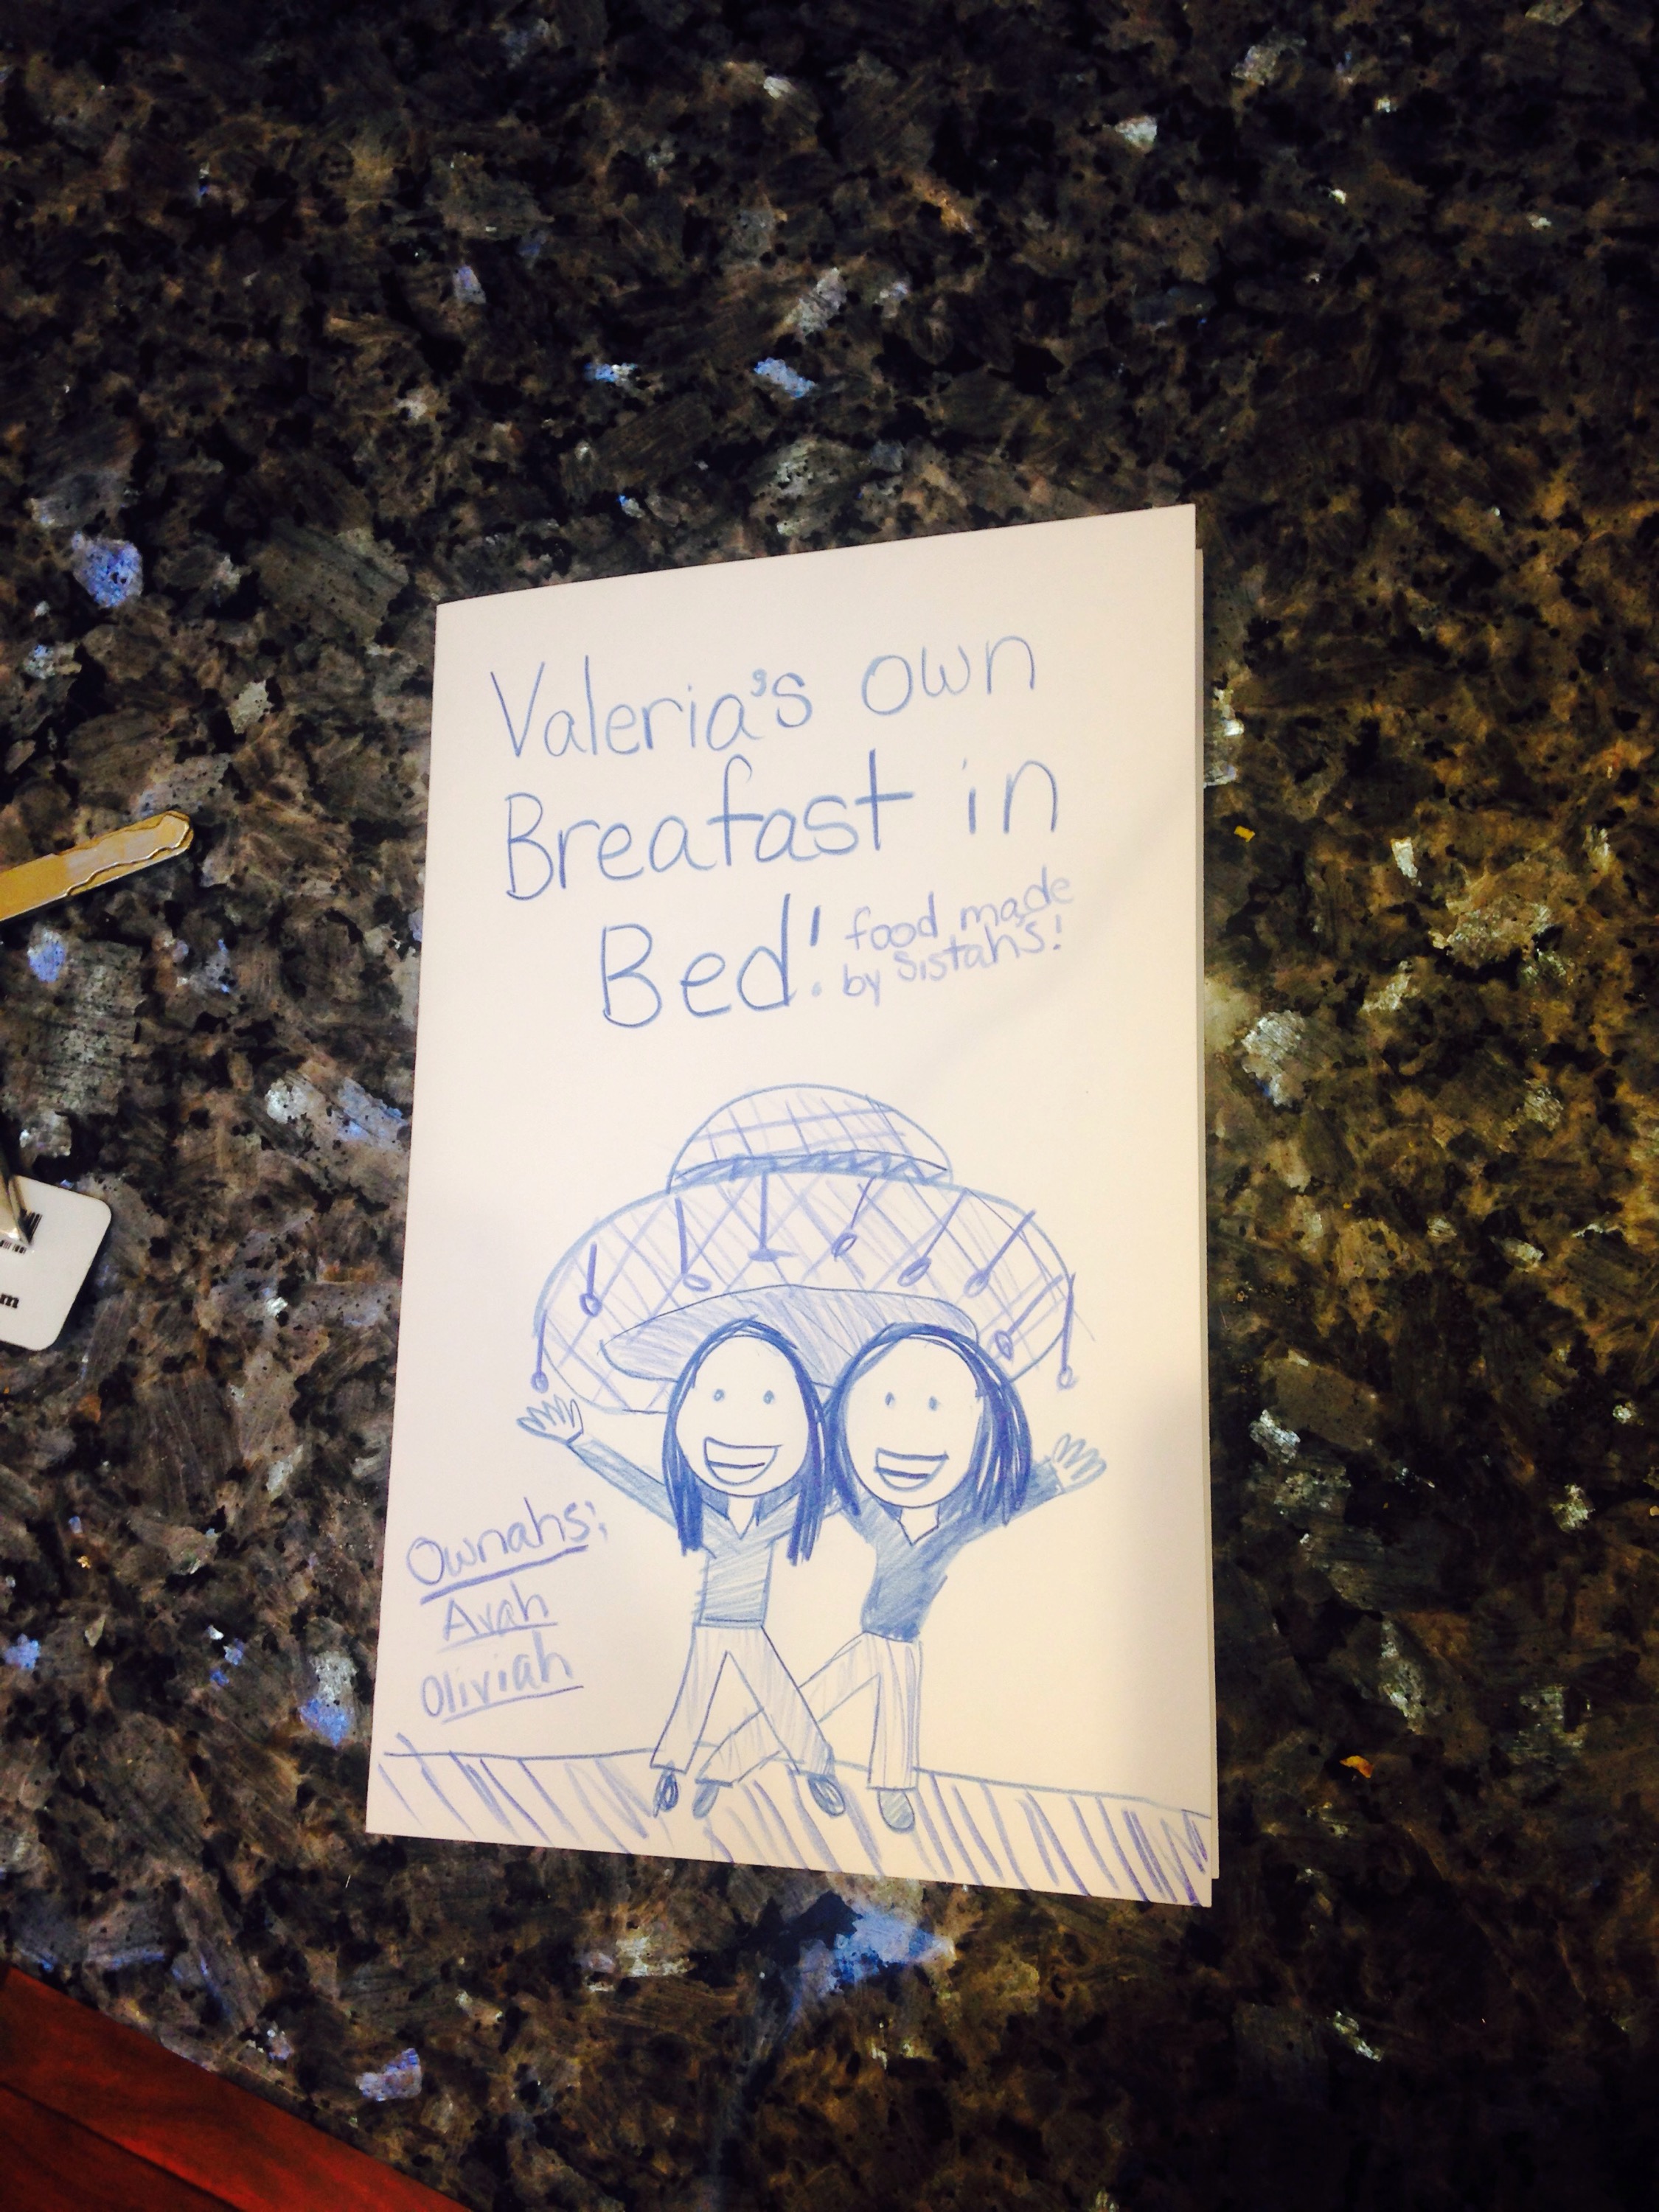 Valeria's own
Breafast in
Bed!
food made
by Sistahs!
Ownahs:
Avah
Oliviah
m